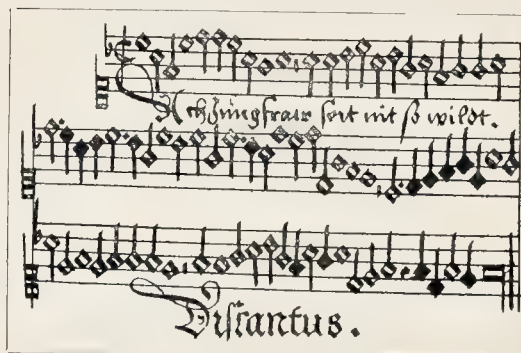 Ach Jungfraw seit nit so wildt.
Discantus.